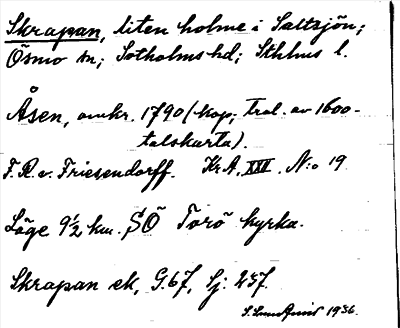 Skrapan, liten holme i Saltsjön;
Ösmo sn; Sotholms hd; Sthlms l.
Åsen, omkr. 1790 (kop. trol. av 1600-
talskarta).
F. R. v. Friesendorff. Kr A, XXVI. N:o 19
Läge 9 1/2 km. SÖ Torö kyrka.
Skrapan ek, G. 67, Sj: 237.
S. Lundqvist 1936.